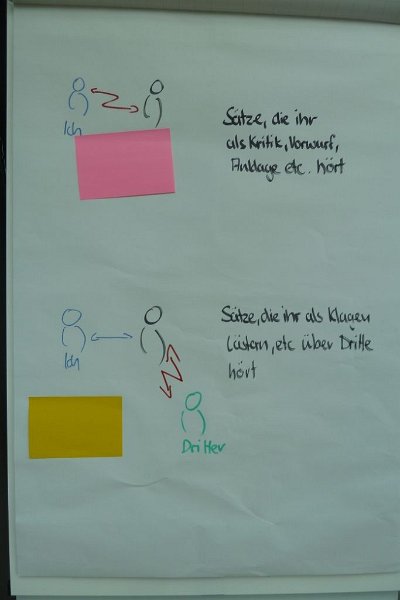 Ich
Sätze, die ihr
als Kritik, Vorwurf,
Anklage etc. hört
Ich
Sätze, die ihr als Klagen
Lästern, etc über Dritte
hört
Dritter